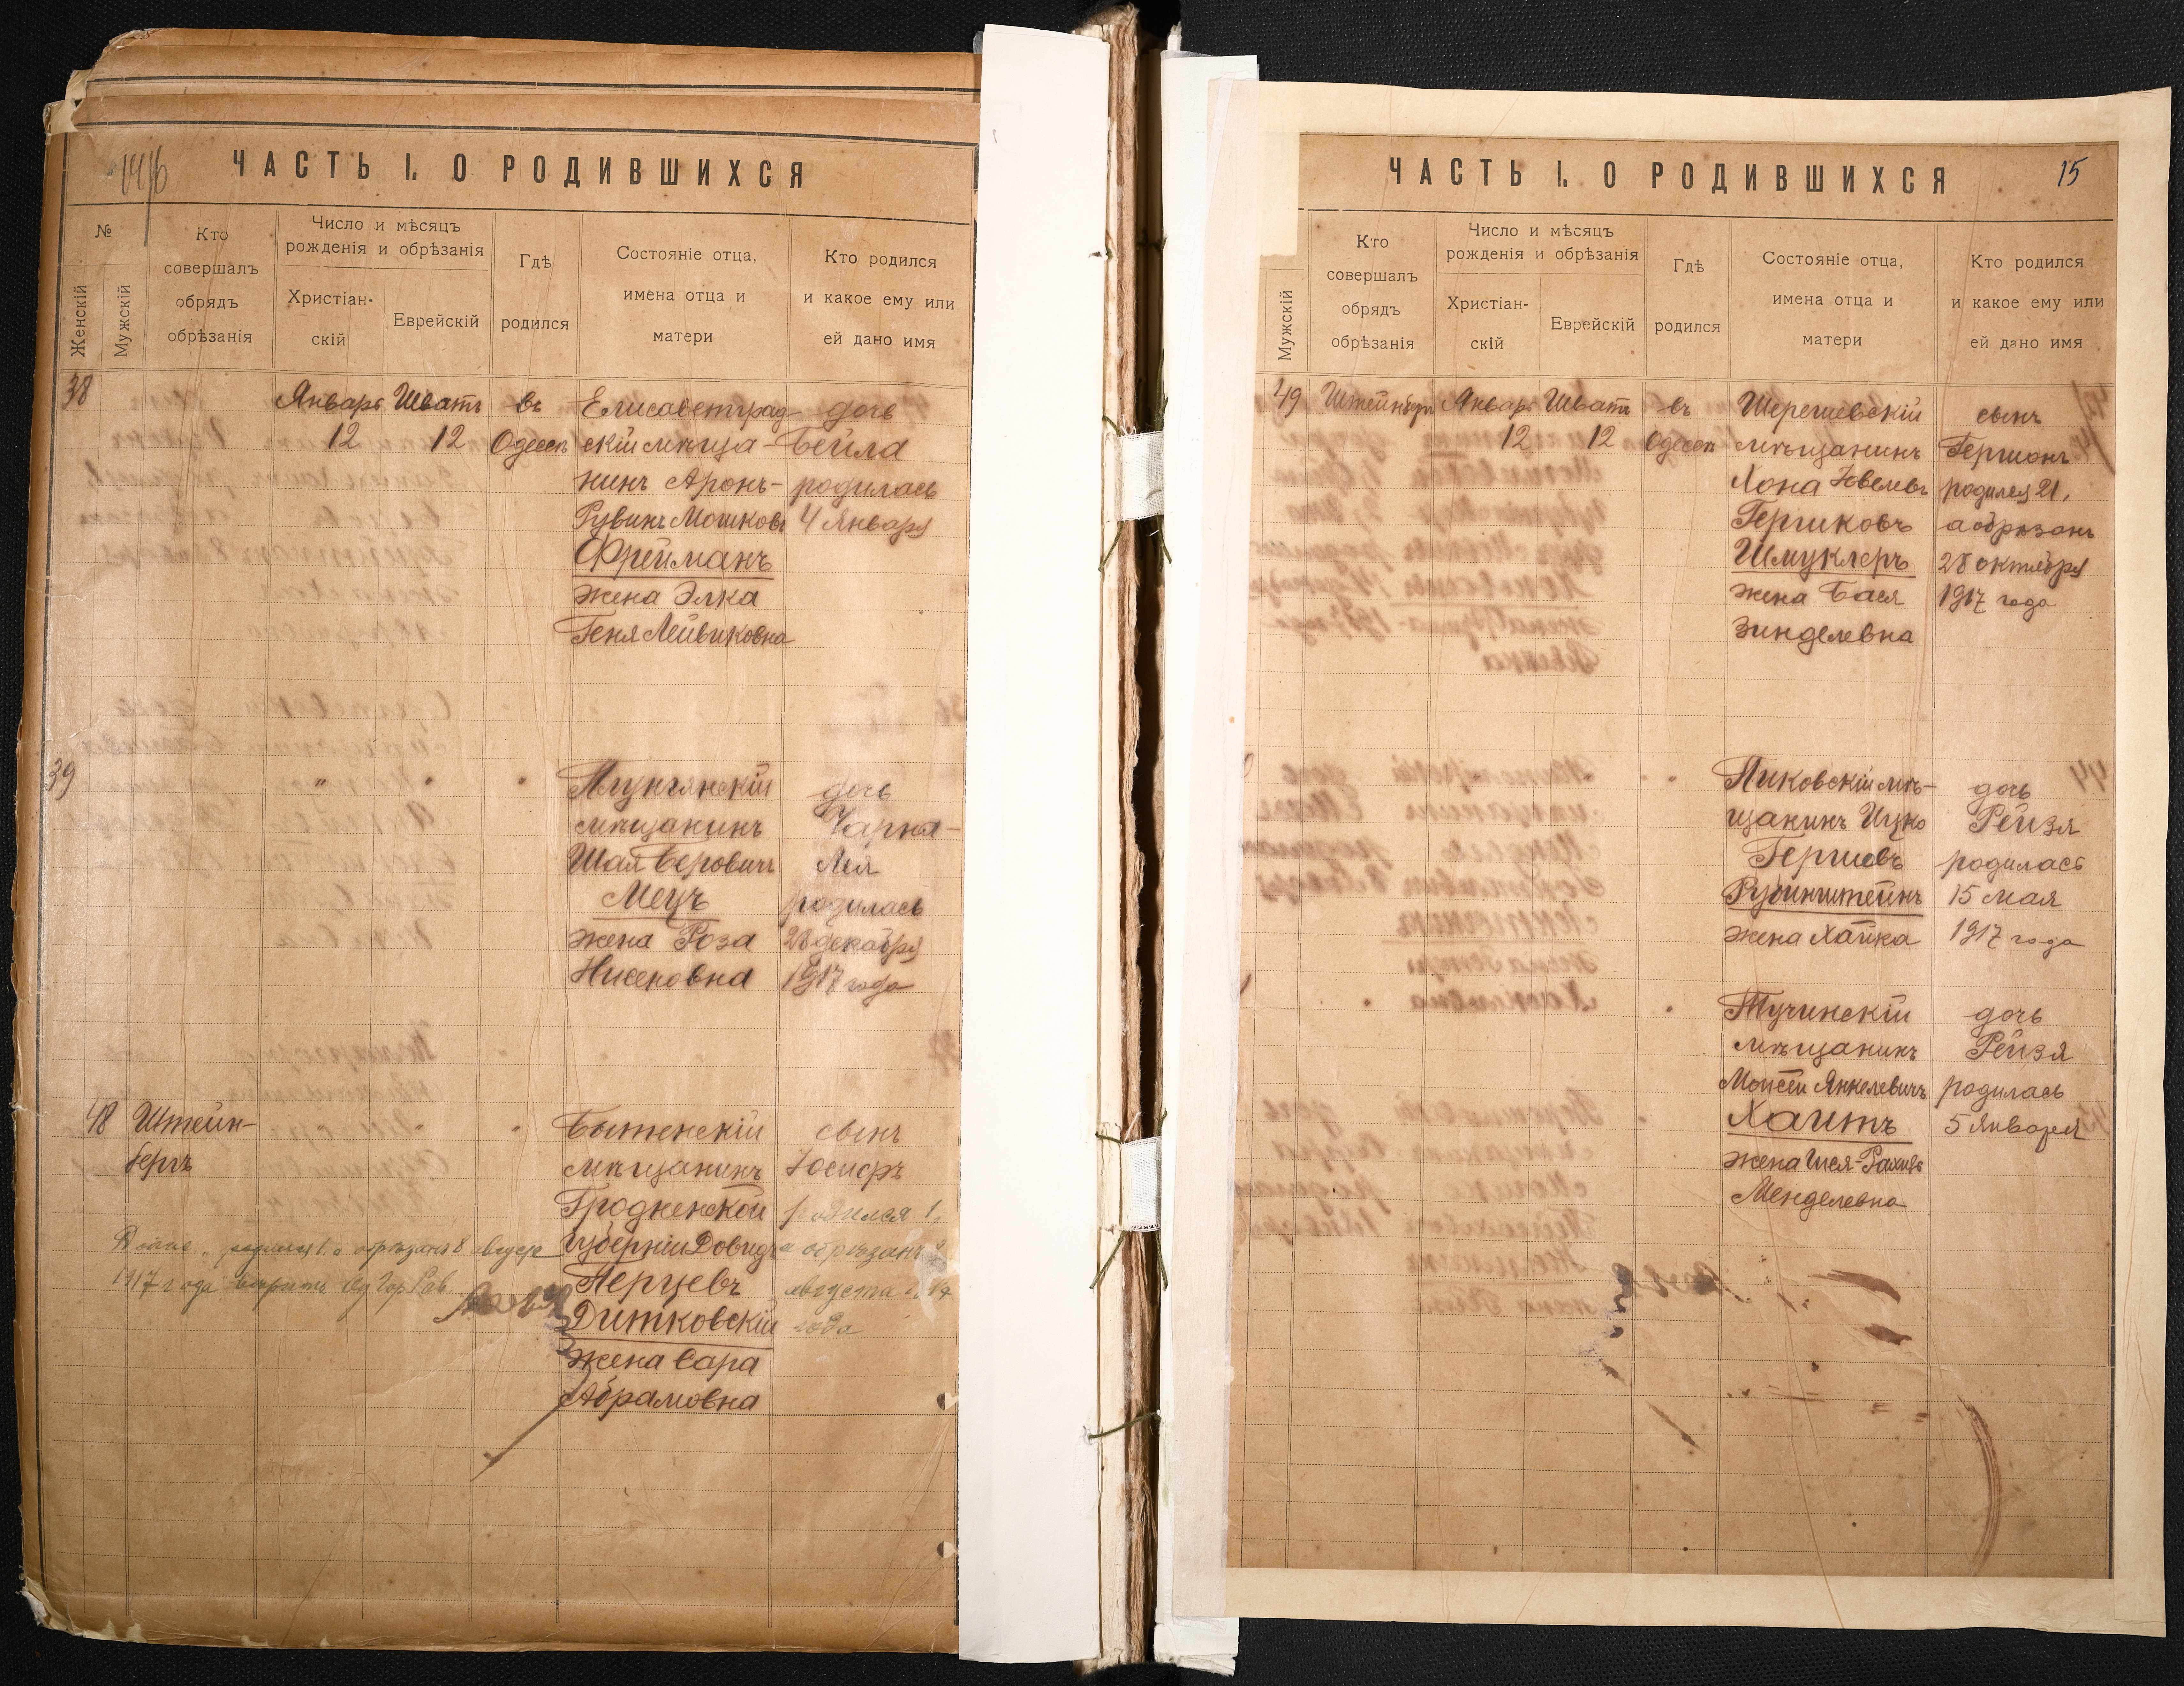 ЧАСТЬ I. О РОДИВШИХСЯ
№
Женскій
Мужскій
Кто
совершалъ
обрядъ
обрѣзанія
Число и мѣсяцъ
рожденія и обрѣзанія
Христіан-
скій
Еврейскій
Гдѣ
родился
Состояніе отца,
имена отца и
матери
Кто родился
и какое ему или
ей дано имя
38 Январь Шватъ въ Елисаветград- дочь
12 12 Одессѣ скій мѣща- Бейла
нинъ Аронъ- родилась
Рувинъ Мошковъ 4 Января
Фрейманъ
жена Элка
Геня Лейвиковна
39 " " " Плунгянскій дочь
мѣщанинъ Чарна-
Шая Беровичъ Лея
Мецъ родилась
жена Роза 28 декабря
Нисеновна 1917 года
48 Штейн- " Бытенскій сынъ
бергъ мѣщанинъ Іосифъ
Гродненской родился 1,
губерніи Довидъ а обрѣзанъ 8
Перцевъ августа
Дитковскій года
жена Сара
Абрамовна
родился 1 а обрѣзанъ 8 августа
1917 года вѣрить
ЧАСТЬ I. О РОДИВШИХСЯ
15
Мужскій
Кто
совершалъ
обрядъ
обрѣзанія
Число и мѣсяцъ
рожденія и обрѣзанія
Христіан-
скій
Еврейскій
Гдѣ
родился
Состояніе отца,
имена отца и
матери
Кто родился
и какое ему или
ей дано имя
49 Штейнбергъ Январь Шватъ въ Шерешевскій сынъ
12 12 Одессѣ мѣщанинъ Гершонъ
Хона родился 21,
Гершковъ а обрѣзанъ
Шмуклеръ 28 октября
жена Бася 1917 года
Зинделевна
" " Пиковскій мѣ- дочь
щанинъ Ицко Рейзя
Гершевъ родилась
Рубинштейнъ 15 мая
жена Хайка 1917 года
" Тучинскій дочь
мѣщанинъ Рейзя
Мойсей Янкелевичъ родилась
Хаитъ 5 Января
жена
Менделевна